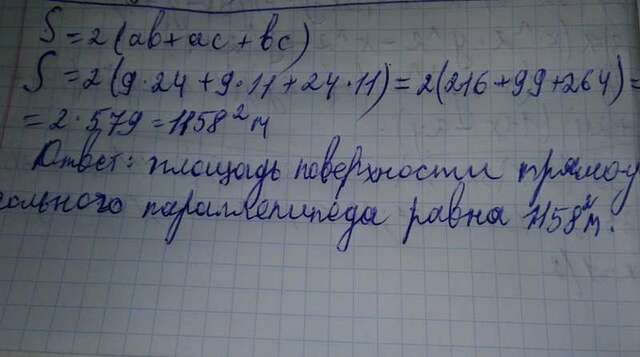 S=2(ab+ac+bc)
S=2(9·24+9·11+24·11)=2(216+99+264)=
=2·579=1158²м
Ответ: площадь поверхности прямоу
гольного параллепипеда равна 1158²м.